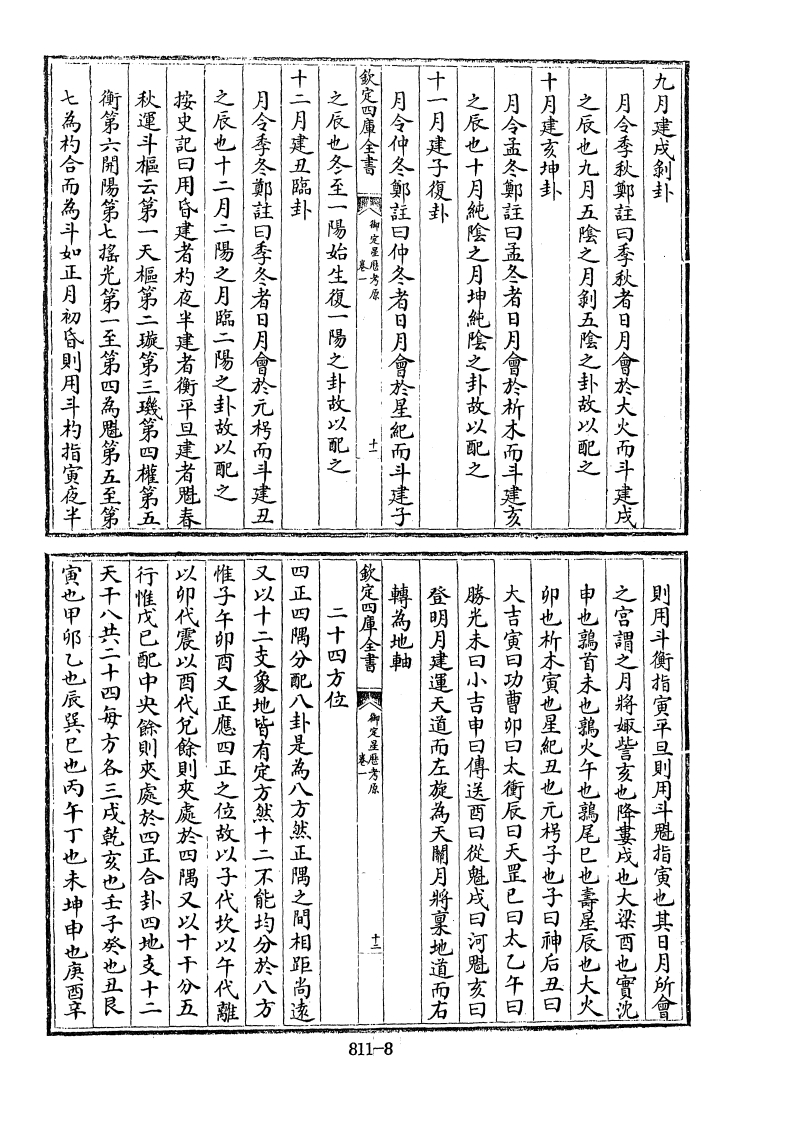 九月建戌剝卦
月令季秋鄭註曰季秋者日月會於大火而斗建戌
之辰也九月五陰之月剝五陰之卦故以配之
十月建亥坤卦
月令孟冬鄭註曰孟冬者日月會於析木而斗建亥
之辰也十月純陰之月坤純陰之卦故以配之
十一月建子復卦
月令仲冬鄭註曰仲冬者日月會於星紀而斗建子
欽定四庫全書
御定星歷考原
卷一
十一
之辰也冬至一陽始生復一陽之卦故以配之
十二月建丑臨卦
月令季冬鄭註曰季冬者日月會於元枵而斗建丑
之辰也十二月二陽之月臨二陽之卦故以配之
按史記曰用昏建者杓夜半建者衡平旦建者魁春
秋運斗樞云第一天樞第二璇第三璣第四權第五
衡第六開陽第七搖光第一至第四為魁第五至第
七為杓合而為斗如正月初昏則用斗杓指寅夜半
則用斗衡指寅平旦則用斗魁指寅也其日月所會
之宮謂之月將娵訾亥也降婁戌也大梁酉也實沈
申也鶉首未也鶉火午也鶉尾巳也壽星辰也大火
卯也析木寅也星紀丑也元枵子也子曰神后丑曰
大吉寅曰功曹卯曰太衝辰曰天罡巳曰太乙午曰
勝光未曰小吉申曰傳送酉曰從魁戌曰河魁亥曰
登明月建運天道而左旋為天關月將稟地道而右
轉為地軸
欽定四庫全書
御定星歷考原
卷一
十二
二十四方位
四正四隅分配八卦是為八方然正隅之間相距尚遠
又以十二支象地皆有定方然十二不能均分於八方
惟子午卯酉又正應四正之位故以子代坎以午代離
以卯代震以酉代兌餘則夾處於四隅又以十干分五
行惟戊己配中央餘則夾處於四正合卦四地支十二
天干八共二十四每方各三戌乾亥也壬子癸也丑艮
寅也甲卯乙也辰巽巳也丙午丁也未坤申也庚酉辛
811-8